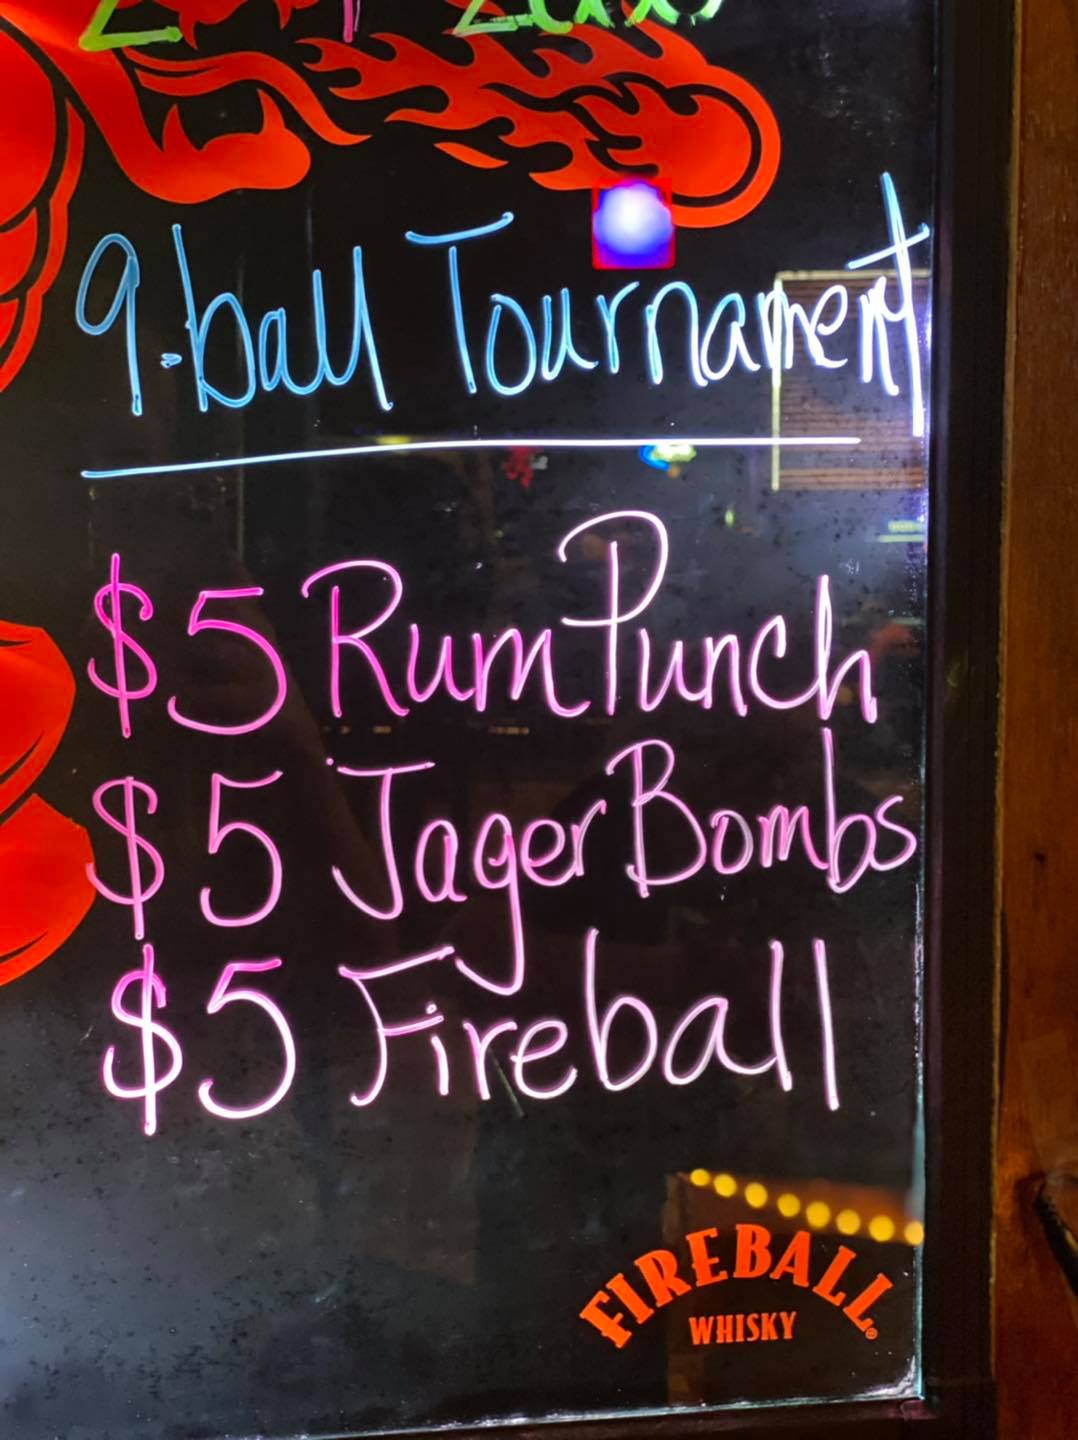 9-ball Tournament
$5 Rum Punch
$5 Jager Bombs
$5 Fireball
FIREBALL
WHISKY